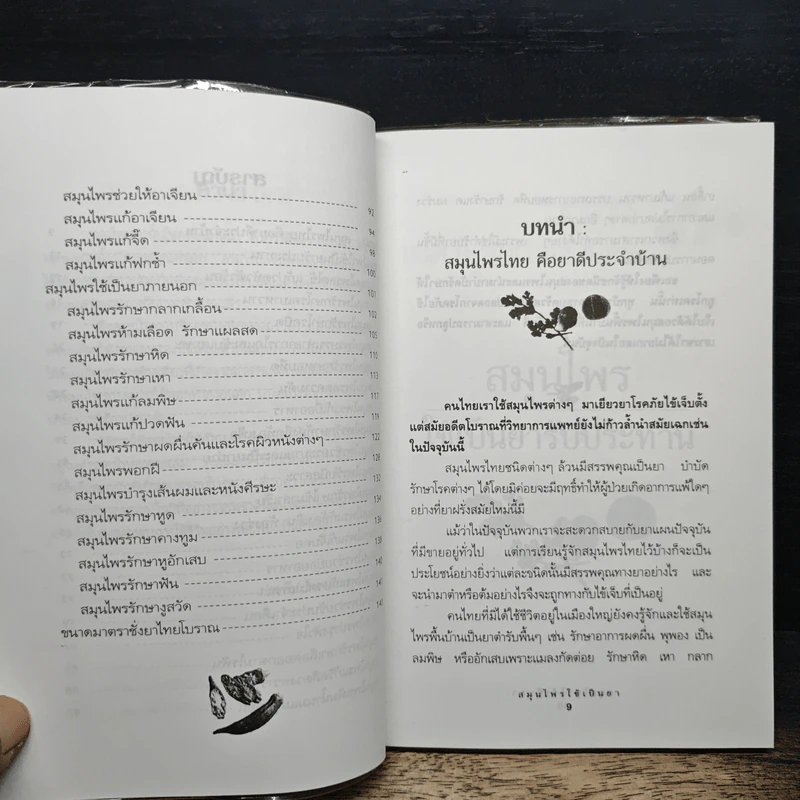 สมุนไพรช่วยให้อาเจียน 92
สมุนไพรแก้อาเจียน 94
สมุนไพรแก้จี๊ด 98
สมุนไพรแก้ฟกช้ำ 100
สมุนไพรใช้เป็นยาภายนอก 101
สมุนไพรรักษากลากเกลื้อน 102
สมุนไพรห้ามเลือด รักษาแผลสด 105
สมุนไพรรักษาหิด 110
สมุนไพรรักษาเหา 113
สมุนไพรแก้ลมพิษ 117
สมุนไพรแก้ปวดฟัน 119
สมุนไพรรักษาผดผื่นคันและโรคผิวหนังต่างๆ 122
สมุนไพรพอกฝี
สมุนไพรบำรุงเส้นผมและหนังศีรษะ
สมุนไพรรักษาหูด
สมุนไพรรักษาคางทูม
สมุนไพรรักษาหูอักเสบ
สมุนไพรรักษาฟัน
สมุนไพรรักษางูสวัด
ขนาดมาตราชั่งยาไทยโบราณ
บทนำ :
สมุนไพรไทย คือยาดีประจำบ้าน
คนไทยเราใช้สมุนไพรต่างๆ มาเยียวยาโรคภัยไข้เจ็บตั้ง
แต่สมัยอดีตโบราณที่วิทยาการแพทย์ยังไม่ก้าวล้ำนำสมัยเฉกเช่น
ในปัจจุบันนี้
สมุนไพรไทยชนิดต่างๆ ล้วนมีสรรพคุณเป็นยา บำบัด
รักษาโรคต่างๆ ได้โดยมิค่อยจะมีฤทธิ์ทำให้ผู้ป่วยเกิดอาการแพ้ใดๆ
อย่างที่ยาฝรั่งสมัยใหม่นี้มี
แม้ว่าในปัจจุบันพวกเราจะสะดวกสบายกับยาแผนปัจจุบัน
ที่มีขายอยู่ทั่วไป แต่การเรียนรู้จักสมุนไพรไทยไว้บ้างก็จะเป็น
ประโยชน์อย่างยิ่งว่าแต่ละชนิดนั้นมีสรรพคุณทางยาอย่างไร และ
จะนำมาตำหรือต้มอย่างไรจึงจะถูกทางกับไข้เจ็บที่เป็นอยู่
คนไทยที่มิได้ใช้ชีวิตอยู่ในเมืองใหญ่ยังคงรู้จักและใช้สมุน
ไพรพื้นบ้านเป็นยาตำรับพื้นๆ เช่น รักษาอาการผดผื่น พุพอง เป็น
ลมพิษ หรืออักเสบเพราะแมลงกัดต่อย รักษาหิด เหา กลาก
สมุนไพรใช้เป็นยา
9